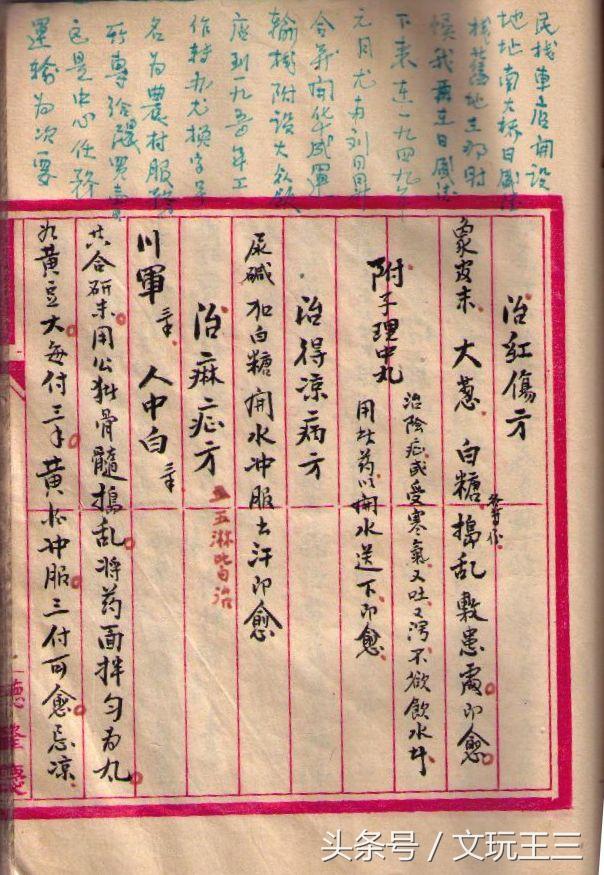 民栈車店開設
地址南大橋日風法
栈旧地主那时
候我再主日風法
下来連一九四九年
元月尤有刘日昇
合并開华威運
輸栈附設大众飲
店到一九五〇年工
作轉九尤换字号
名为農村服務
所專給灃買賣
它是中心任務
運输为次要
治紅傷方
象皮末 大葱 白糖 各等分 搗乱敷患處即愈
附子理中丸 治陰症或受寒氣又吐又瀉不欲飲水
用此药以開水送下即愈
治得凉病方
尿碱加白糖開水冲服出汗即愈
治痳症方 五淋皆治
川軍 三錢 人中白 三錢
共合研末用公猪骨髓搗乱將药面拌匀为丸
如黄豆大每付三錢黄酒冲服三付可愈忌凉
德隆慶
头条号 / 文玩王三